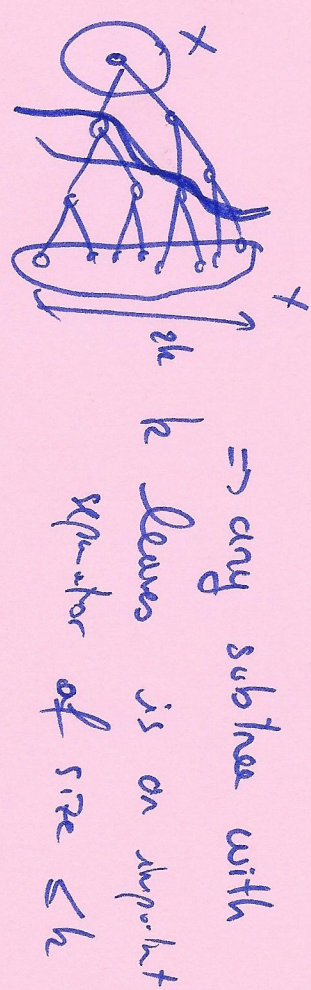 X
Y
2k
⇒ any subtree with
k leaves is an important
separator of size ≤k